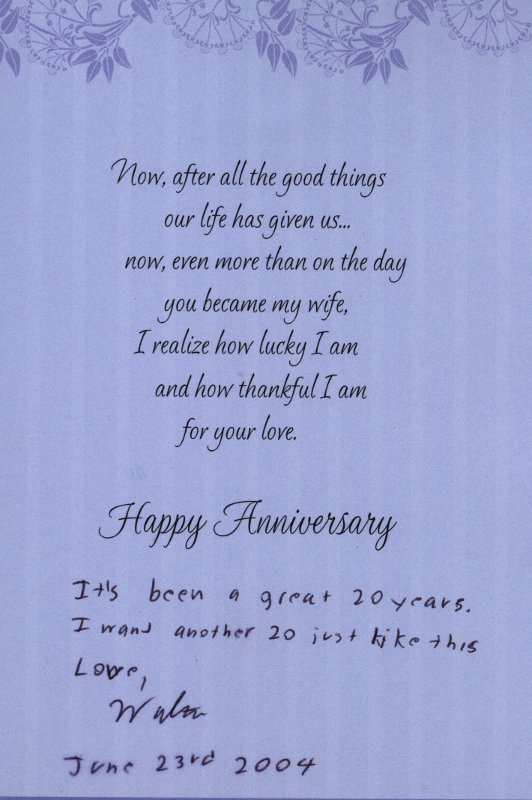 Now, after all the good things
our life has given us...
now, even more than on the day
you became my wife,
I realize how lucky I am
and how thankful I am
for your love.
Happy Anniversary
It's been a great 20 years.
I want another 20 just like this
Love,
June 23rd 2004